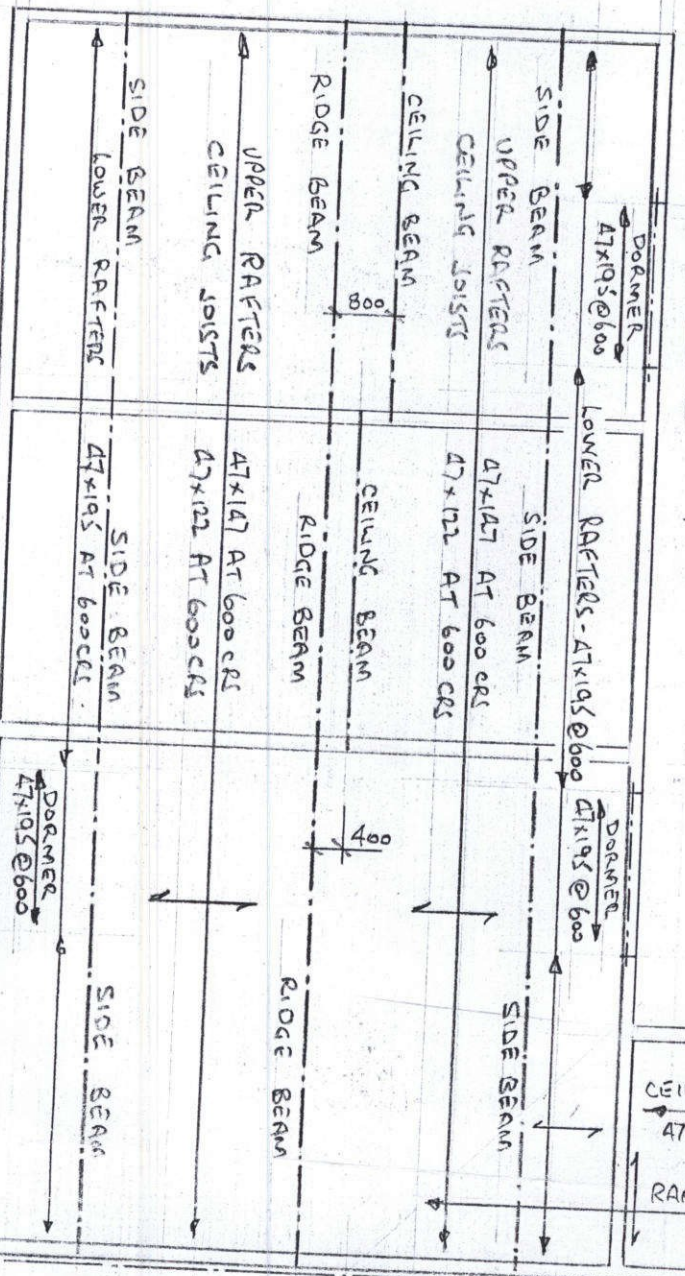 DORMER
47x195@600
LOWER RAFTERS - 47x195@600
DORMER
47x195@600
SIDE BEAM
SIDE BEAM
SIDE BEAM
UPPER RAFTERS
47x147 AT 600 CRS
CEILING JOISTS
47x122 AT 600 CRS
CEILING BEAM
CEILING BEAM
800
400
RIDGE BEAM
RIDGE BEAM
RIDGE BEAM
UPPER RAFTERS
47x147 AT 600 CRS
CEILING JOISTS
47x122 AT 600 CRS
SIDE BEAM
SIDE BEAM
SIDE BEAM
LOWER RAFTERS
47x195 AT 600 CRS.
DORMER
47x195@600
47